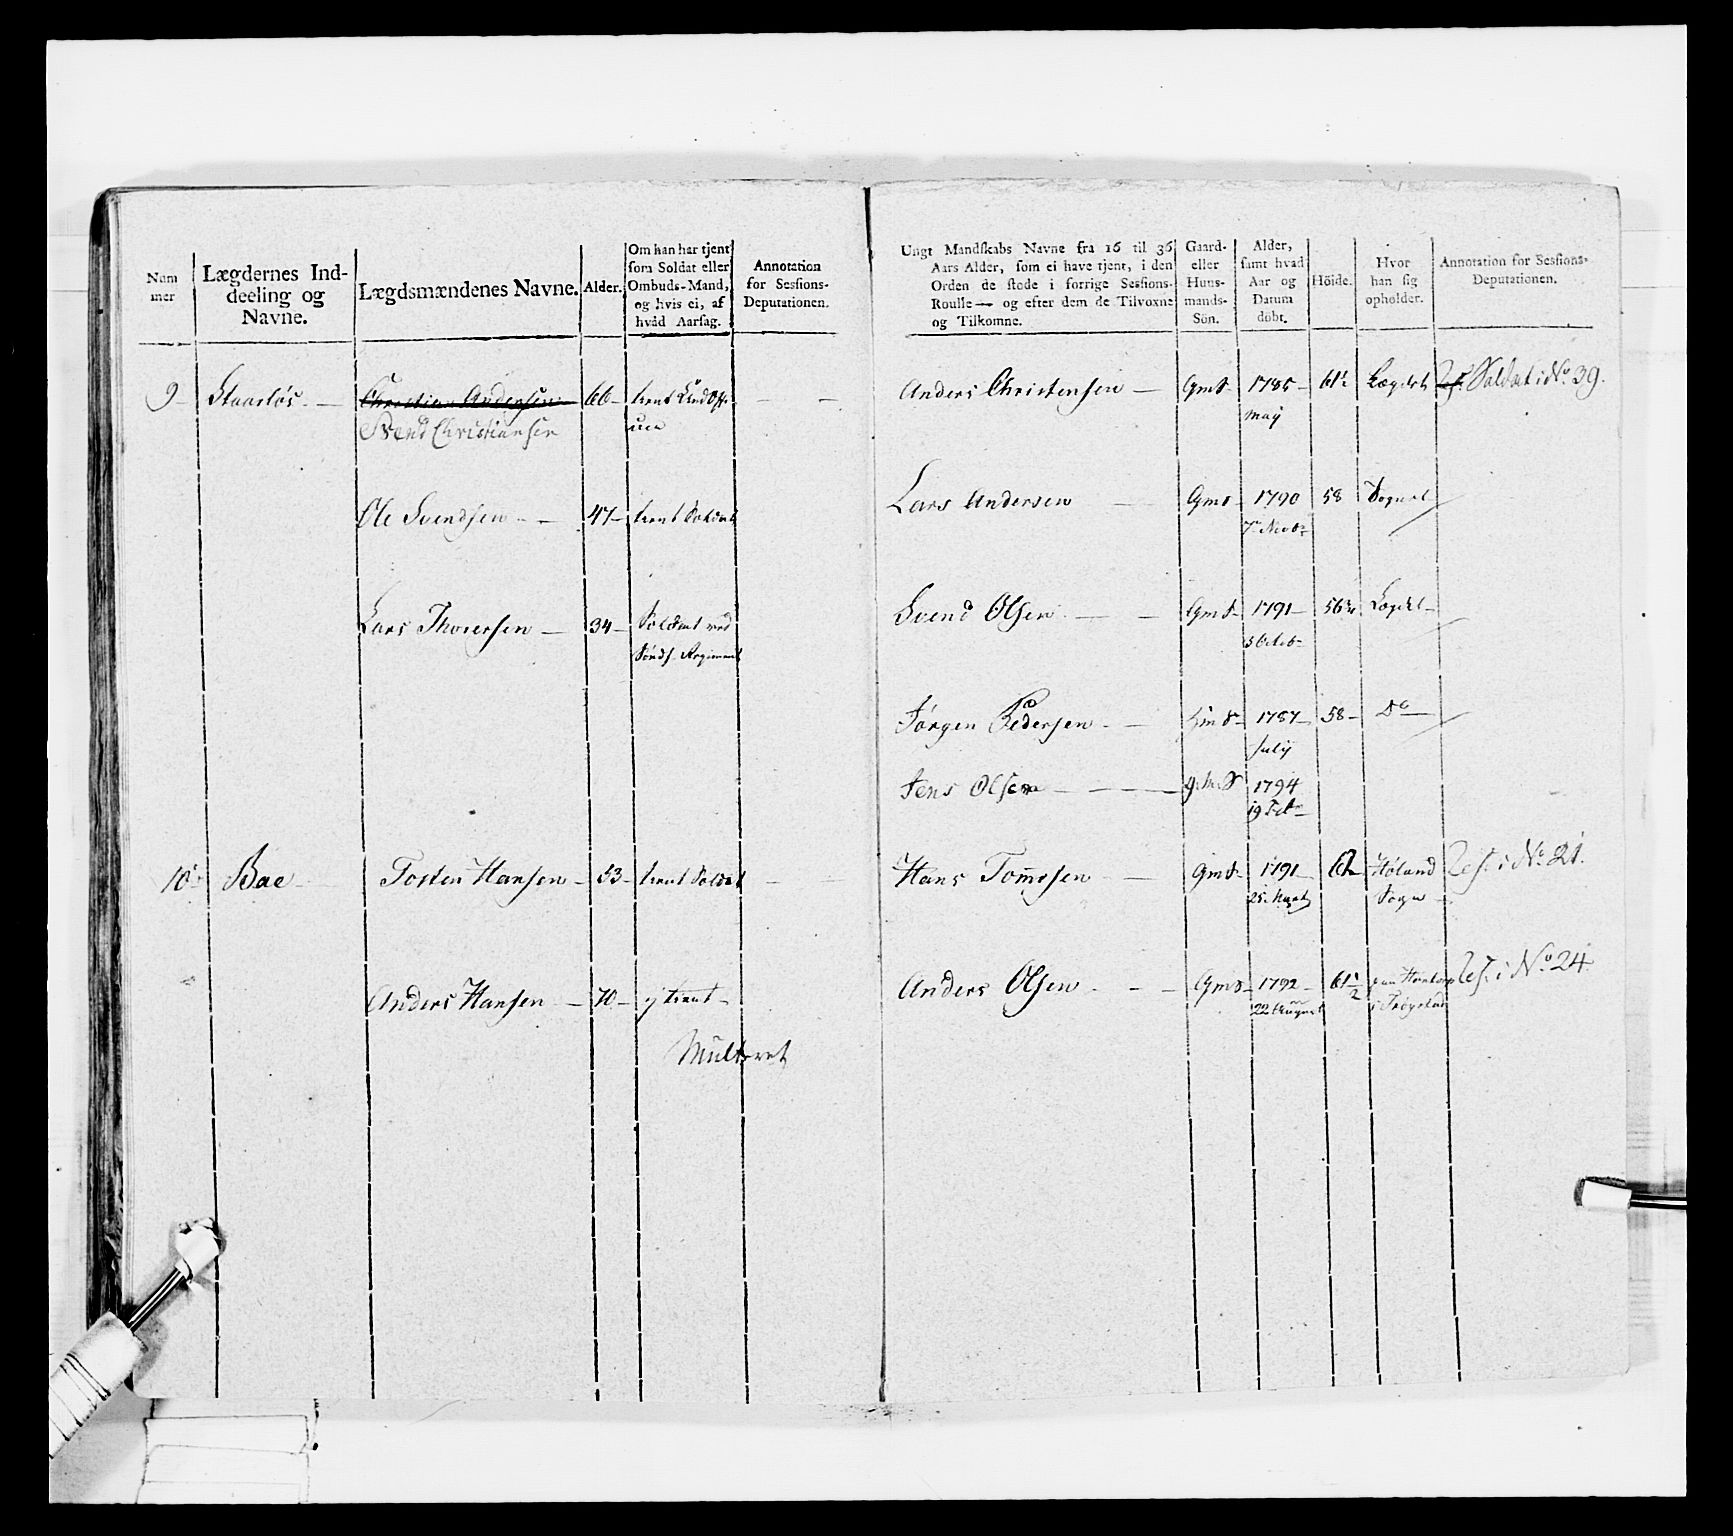 Num
mer
Lægdernes Ind-
deeling og
Navne.
Lægdsmændenes Navne.
Alder.
Om han har tjent
som Soldat eller
Ombuds-Mand,
og hvis ei, af
hvad Aarsag.
Annotation
for Sessions-
Deputationen.
Ungt Mandskabs Navne fra 16 til 36
Aars Alder, som ei have tjent, i den
Orden de stode i forrige Sessions-
Roulle — og efter dem de Tilvoxne
og Tilkomne.
Gaard-
eller
Huus-
mands-
Sön.
Alder,
samt hvad
Aar og
Datum
döbt.
Höide.
Hvor
han sig
opholder.
Annotation for Sessions-
Deputationen.
9 Christian Andersen 66
Svend Christiansen
Anders Christensen — GmS 1785 61½ Lægdet Soldat i No 39.
may
Ole Svendsen — 47 tient Soldat
Lars Andersen — Gms 1790 58 Sognet
7 Novbr
Lars Thoresen — 34 Soldat ved
Sönds. Regiment
Svend Olsen — GmS 1791 56¾ Lægdet
Jörgen Pedersen — 1787 58 Do
July
Jens Olsen — g.m.S 1794
19 Feb
10 Bae Tosten Hansen 53 tient Soldat
Hans Tommesen — GmS 1791 62 Höland Res. i No 21.
25. Mart Sogn
Anders Hansen — 70 ej tient
Multeret
Anders Olsen — Gms 1792 61½ Res. i No 24.
22 August i Trögstad